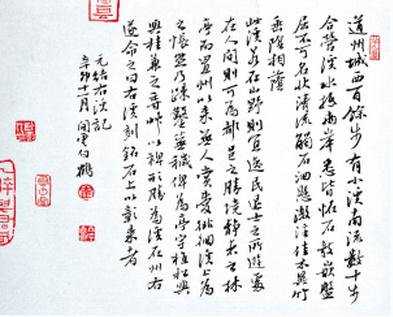 道州城西百餘步有小溪南流數十步
合營溪水抵兩岸悉皆怪石欹嵌盤
屈不可名狀清流觸石洄懸激注佳木異竹
垂陰相蔭
此溪若在山野則宜逸民退士之所遊處
在人間則可為都邑之勝境靜者之林
亭而置州以來無人賞愛徘徊溪上為
之悵然乃疏鑿蕪穢俾為亭宇植松與
桂兼之香艸以裨形勝為溪在州右
遂命之曰右溪刻銘石上以彰來者
元結右溪記
辛卯十一月閒雲白鶴